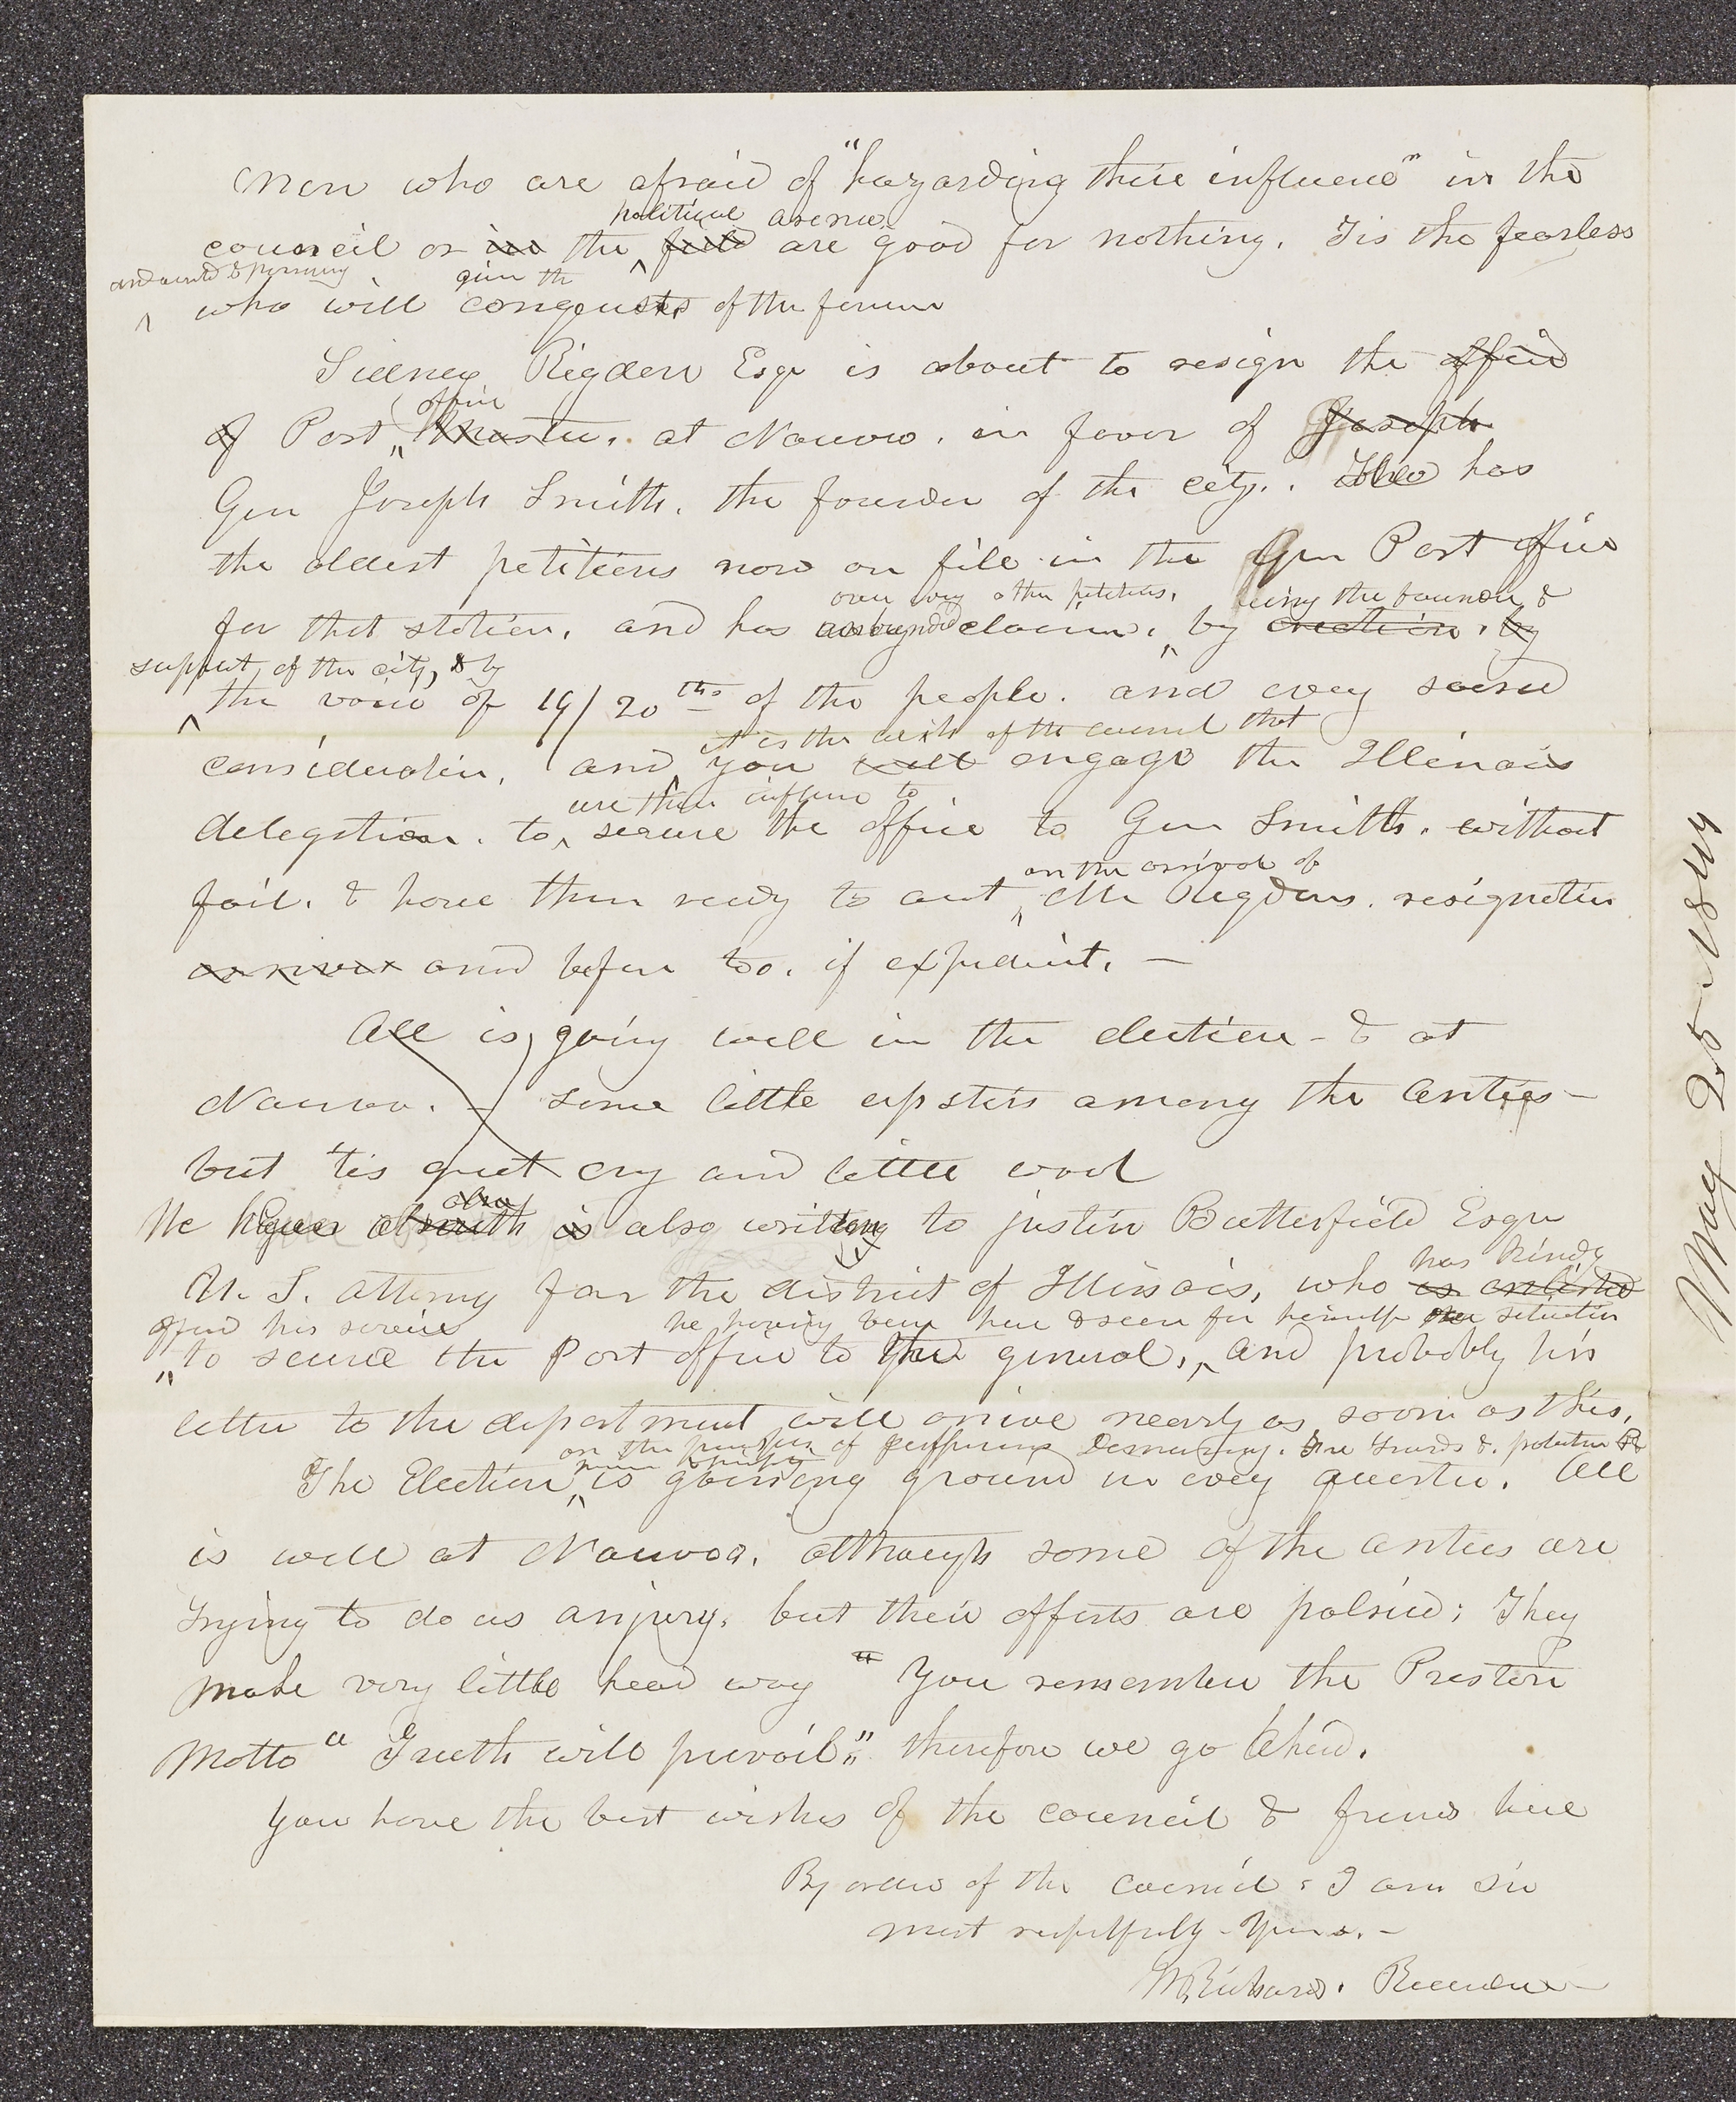 Men who are afraid of "hazarding their influence" in the
political arena
council or in the field are good for nothing. Tis the fearless
give the
who will conquest of the forum
Sidney Rigdon Esqr is about to resign the office
office
of Post Master. at Nauvoo. in favor of Joseph
Gen Joseph Smith. the founder of the city. who has
the oldest petitions now on file in the Gen Post office
over any other petitions. being the founder &
for that station. and has claim. by creation. by
support of the city, & by
the voice of 19/20ths of the people. and every sacred
it is the wish of the council that
consideration, and you will engage the Illinois
use their influence to
delegation. to secure the office to Gen Smith. without
on the arrival of
fail. & have them ready to act Mr Rigdons. resignation
arrives and before too. if expedient. —
All is going well in the election - & at
Nauvoo. — some little upstirs among the Anties —
but 'tis great cry and little wool
also
We is also writing to justin Butterfield Esqr
has kindly
U. S. attorney for the district of Illinois, who is enlisted
offered his service he having been here & seen for himself our situation
to secure the Post office to the general, and probably his
letter to the department will arive nearly as soon as this.
on the principles of Jeffersonian Democracy. Free Trade & protection
The Election is gaining ground in every quarter. All
is well at Nauvoo. although some of the anties are
trying to do us anjury. but their efforts are palsied; They
make very little head way " You remember the Preston
Motto " Truth will prevail"; therefore we go ahead.
You have the best wishes of the council & friends here
By order of the council. I am sir
most respectfully - Yours. —
W. Richards. Recorder —
May 25 - 1844